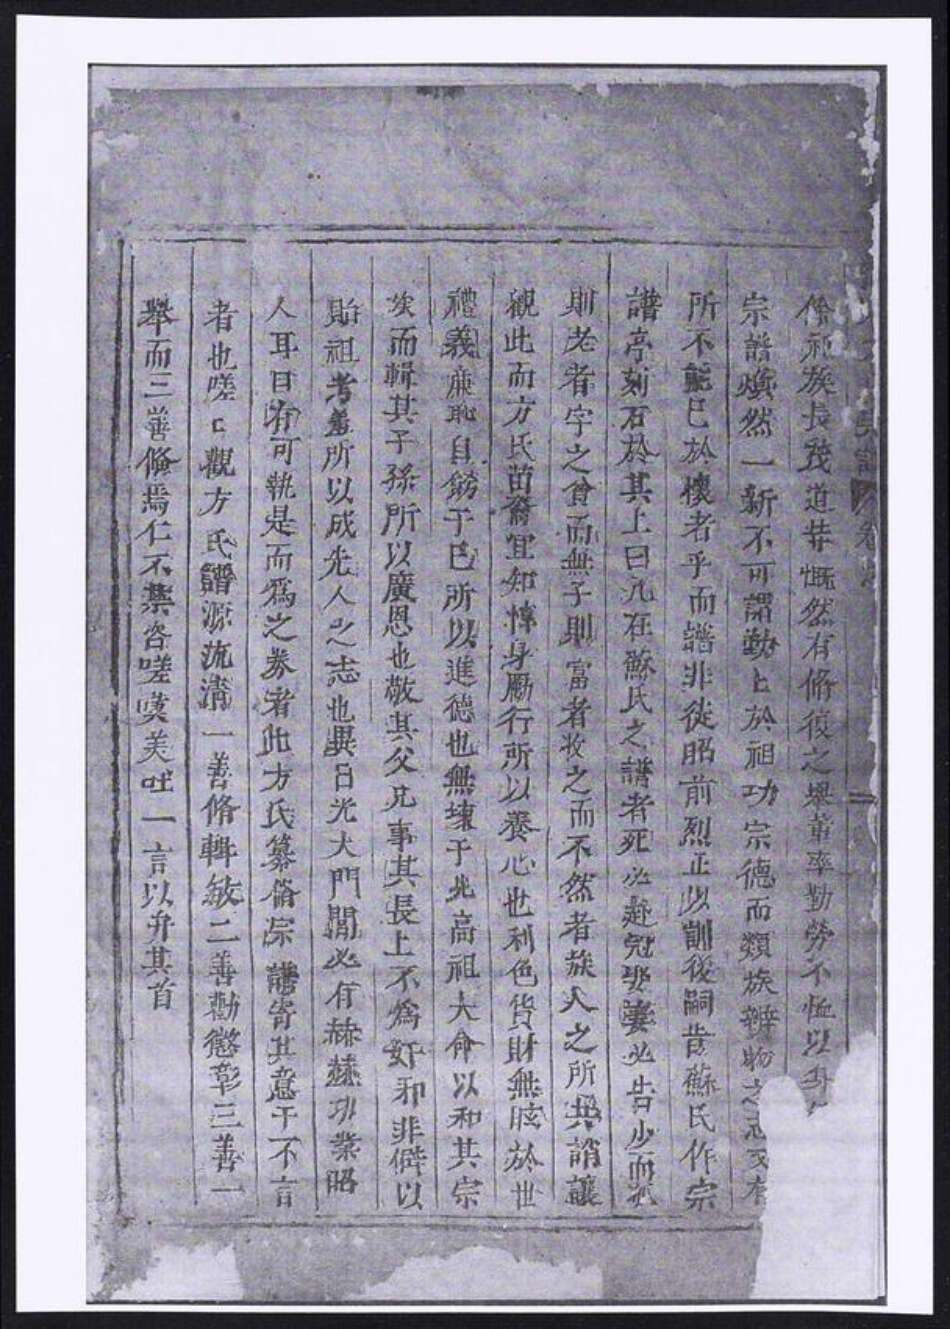 族長茂道等慨然有脩復之舉董率勤勞不恤以
宗譜煥然一新不可謂勤上於祖功宗德而類族辨物之志又有
所不能已於懷者乎而譜非徒昭前烈正以訓後嗣昔蘇氏作宗
譜亭刻石於其上曰凡在蘇氏之譜者死必赴冠娶妻必告少而孤
則老者字之貧而無子則富者收之而不然者族人之所共誚讓
觀此而方氏苗裔宜知惇身勵行所以養心也利色貨財無眩於世
禮義廉恥自飭于己所以進德也無壞于我高祖大命以和其宗
族而輯其子孫所以廣恩也敬其父兄事其長上不為奸邪非僻以
貽祖考羞所以成先人之志也異日光大門閭必有赫赫功業昭
人耳目有可執是而為之券者此方氏纂脩宗譜寄其意于不言
者也嗟匕觀方氏譜源流清一善脩輯敏二善勸懲彰三善一
舉而三善脩焉仁不禁咨嗟嘆美吐一言以弁其首
譜 卷